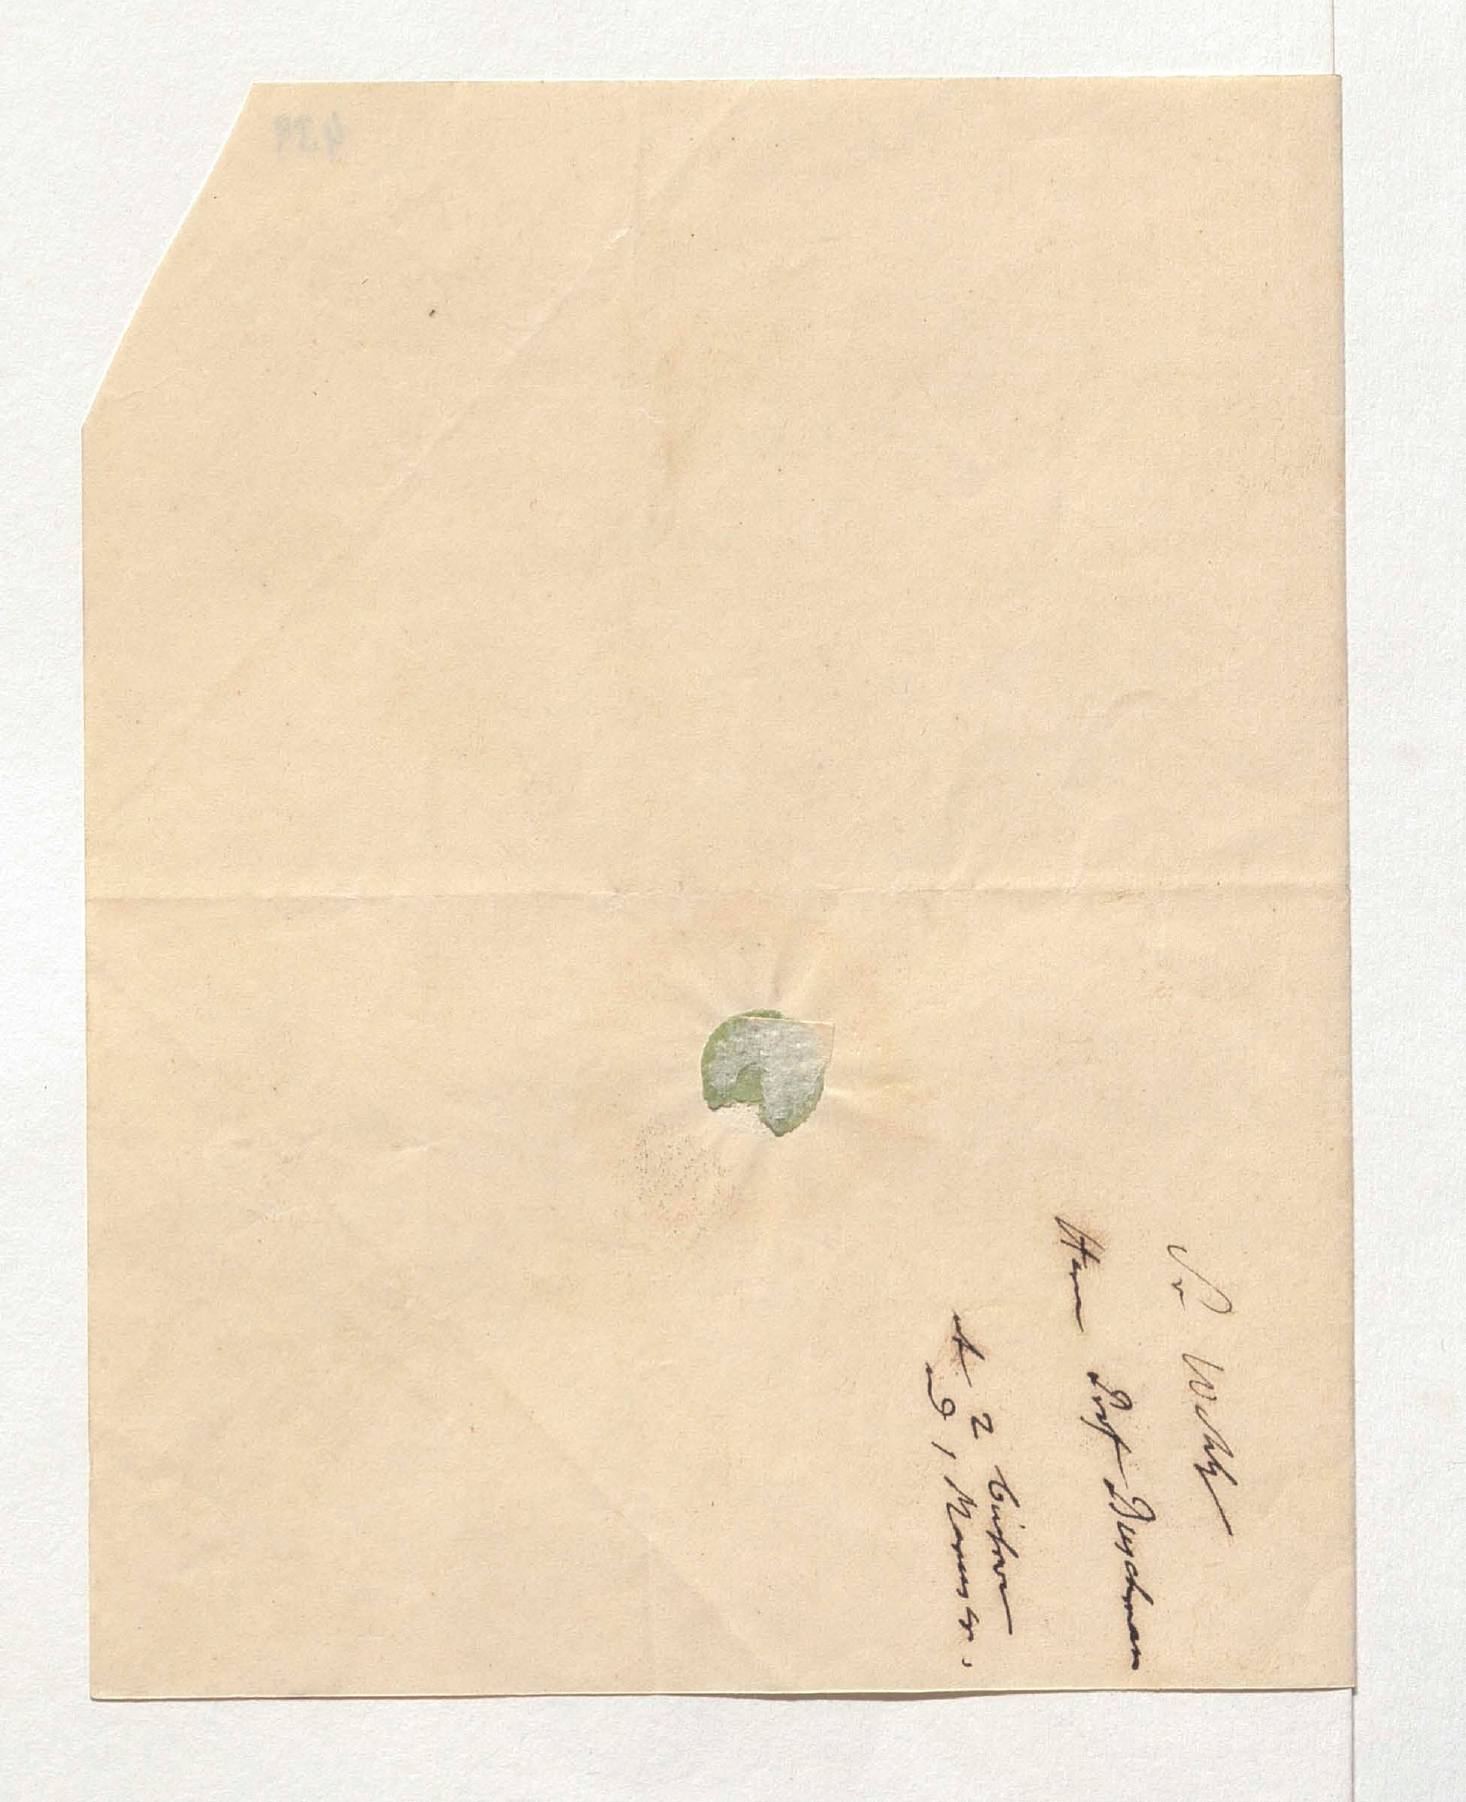 Sr Wohlg
Herrn Prof Buschmann
nebst 2 Büchern
und 1 Manuscr.